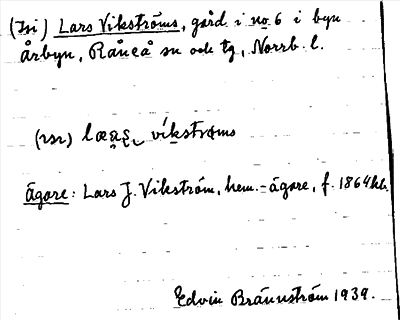 (Isi) Lars Vikströms, gård i no 6 i byn
Årbyn, Råneå sn och tg, Norrb. l.
vikstrøms
Ägare: Lars J. Vikström, hem.-ägare, f. 1864
Edvin Brännström 1939.